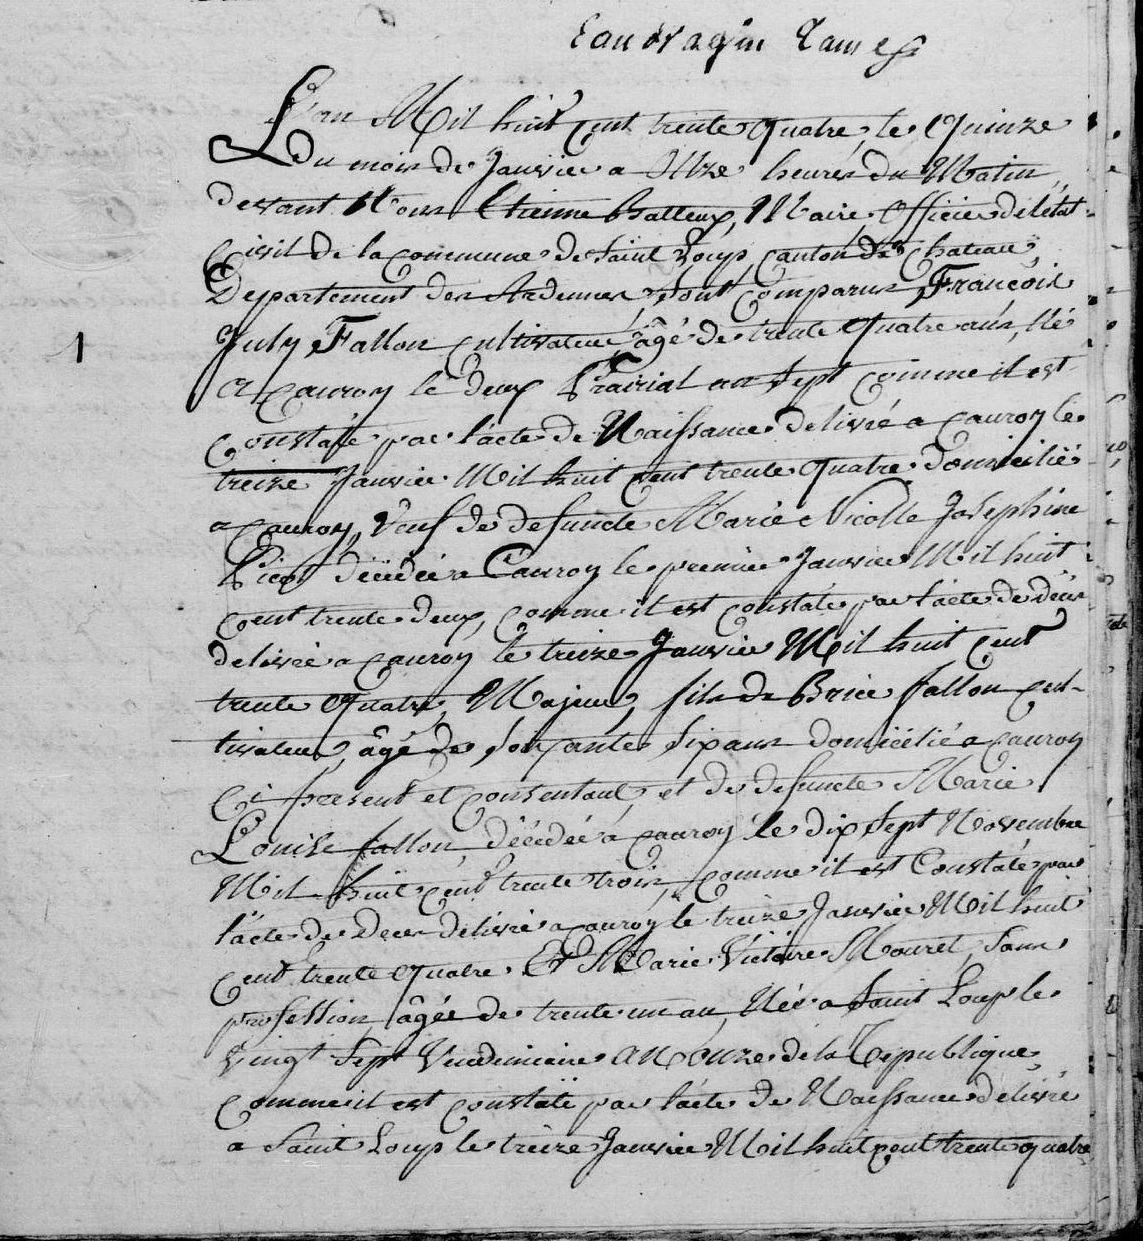 L'an Mil huit cent trente quatre, le Quinze
Du mois de Janvier a Onze heures du Matin
devant Nous Etienne Batteux, Maire Officier de l'état
Civil de la Commune de Saint Loup, canton de Chateau,
Departement des Ardennes, Sont Comparus, François
July Fallon Cultivateur âgé de trente Quatre ans, Né
a Cauroy le deux Prairial an Sept comme il est
Constaté par l'acte de Naissance délivré a Cauroy le
treize Janvier Mil huit cent trente Quatre Domicilié
a Cauroy, Veuf de defuncte Marie Nicolle Josephine
décédée a Cauroy le premier Janvier Mil huit
cent trente deux, comme il est constaté par l'acte de déces
delivré a Cauroy le treize Janvier Mil huit cent
trente Quatre, Majeur, fils de Brice fallon cul-
tivateur, âgé de Soixante Six ans domicilié a Cauroy
Ci present et consentant, et de defuncte Marie
Louise fallon, décédée à Cauroy le dix Sept Novembre
Mil huit cent trente trois, comme il est Constaté par
l'acte de Deces delivré a Cauroy le treize Janvier Mil huit
cent trente Quatre. Et Marie Victoire Mouret, Sans
profession, âgée de trente un an, Née a Saint Loup le
Vingt Sept Vendemiaire an Onze de la Republique
comme il est constaté par l'acte de Naissance délivré
a Saint Loup le treize Janvier Mil huit cent trente quatre
1